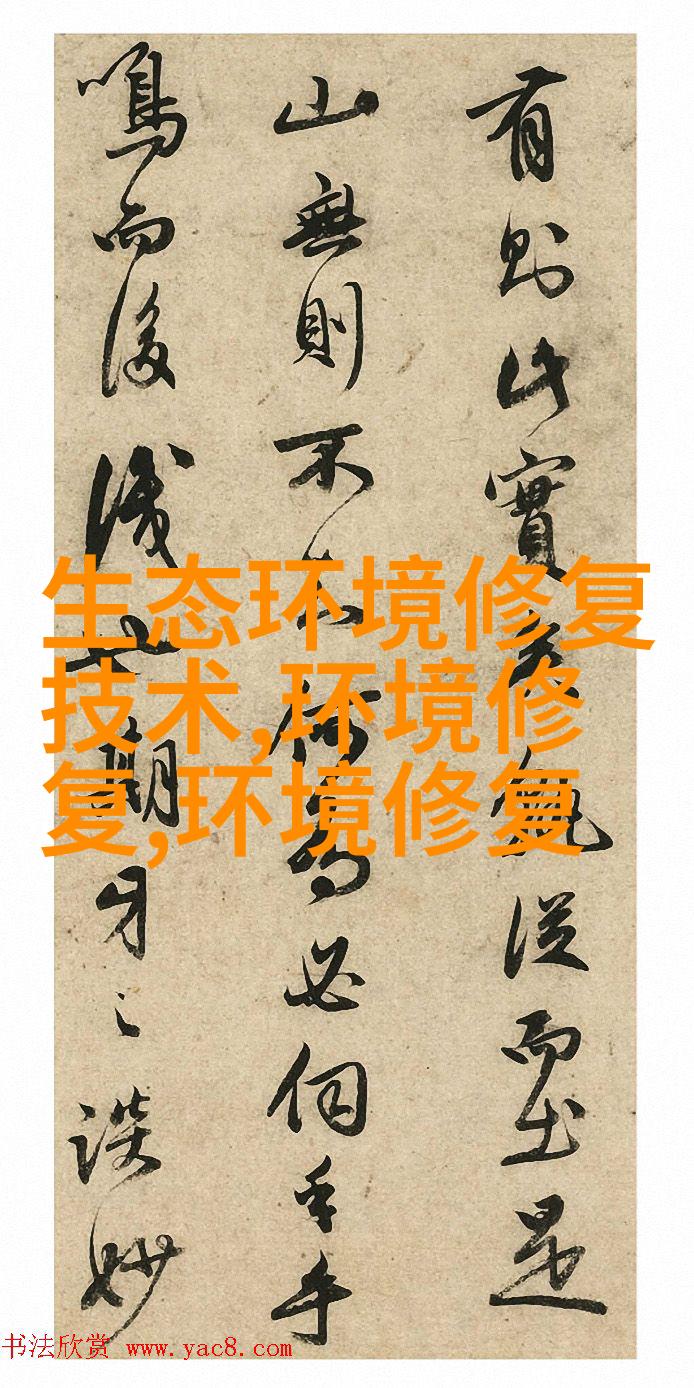 有則此實氣從而出是
山無則不何為必伺手
鳴而後識也期牙談妙
生态环境修复
技术,环境修
复,环境修复
书法欣赏 www.yac8.com